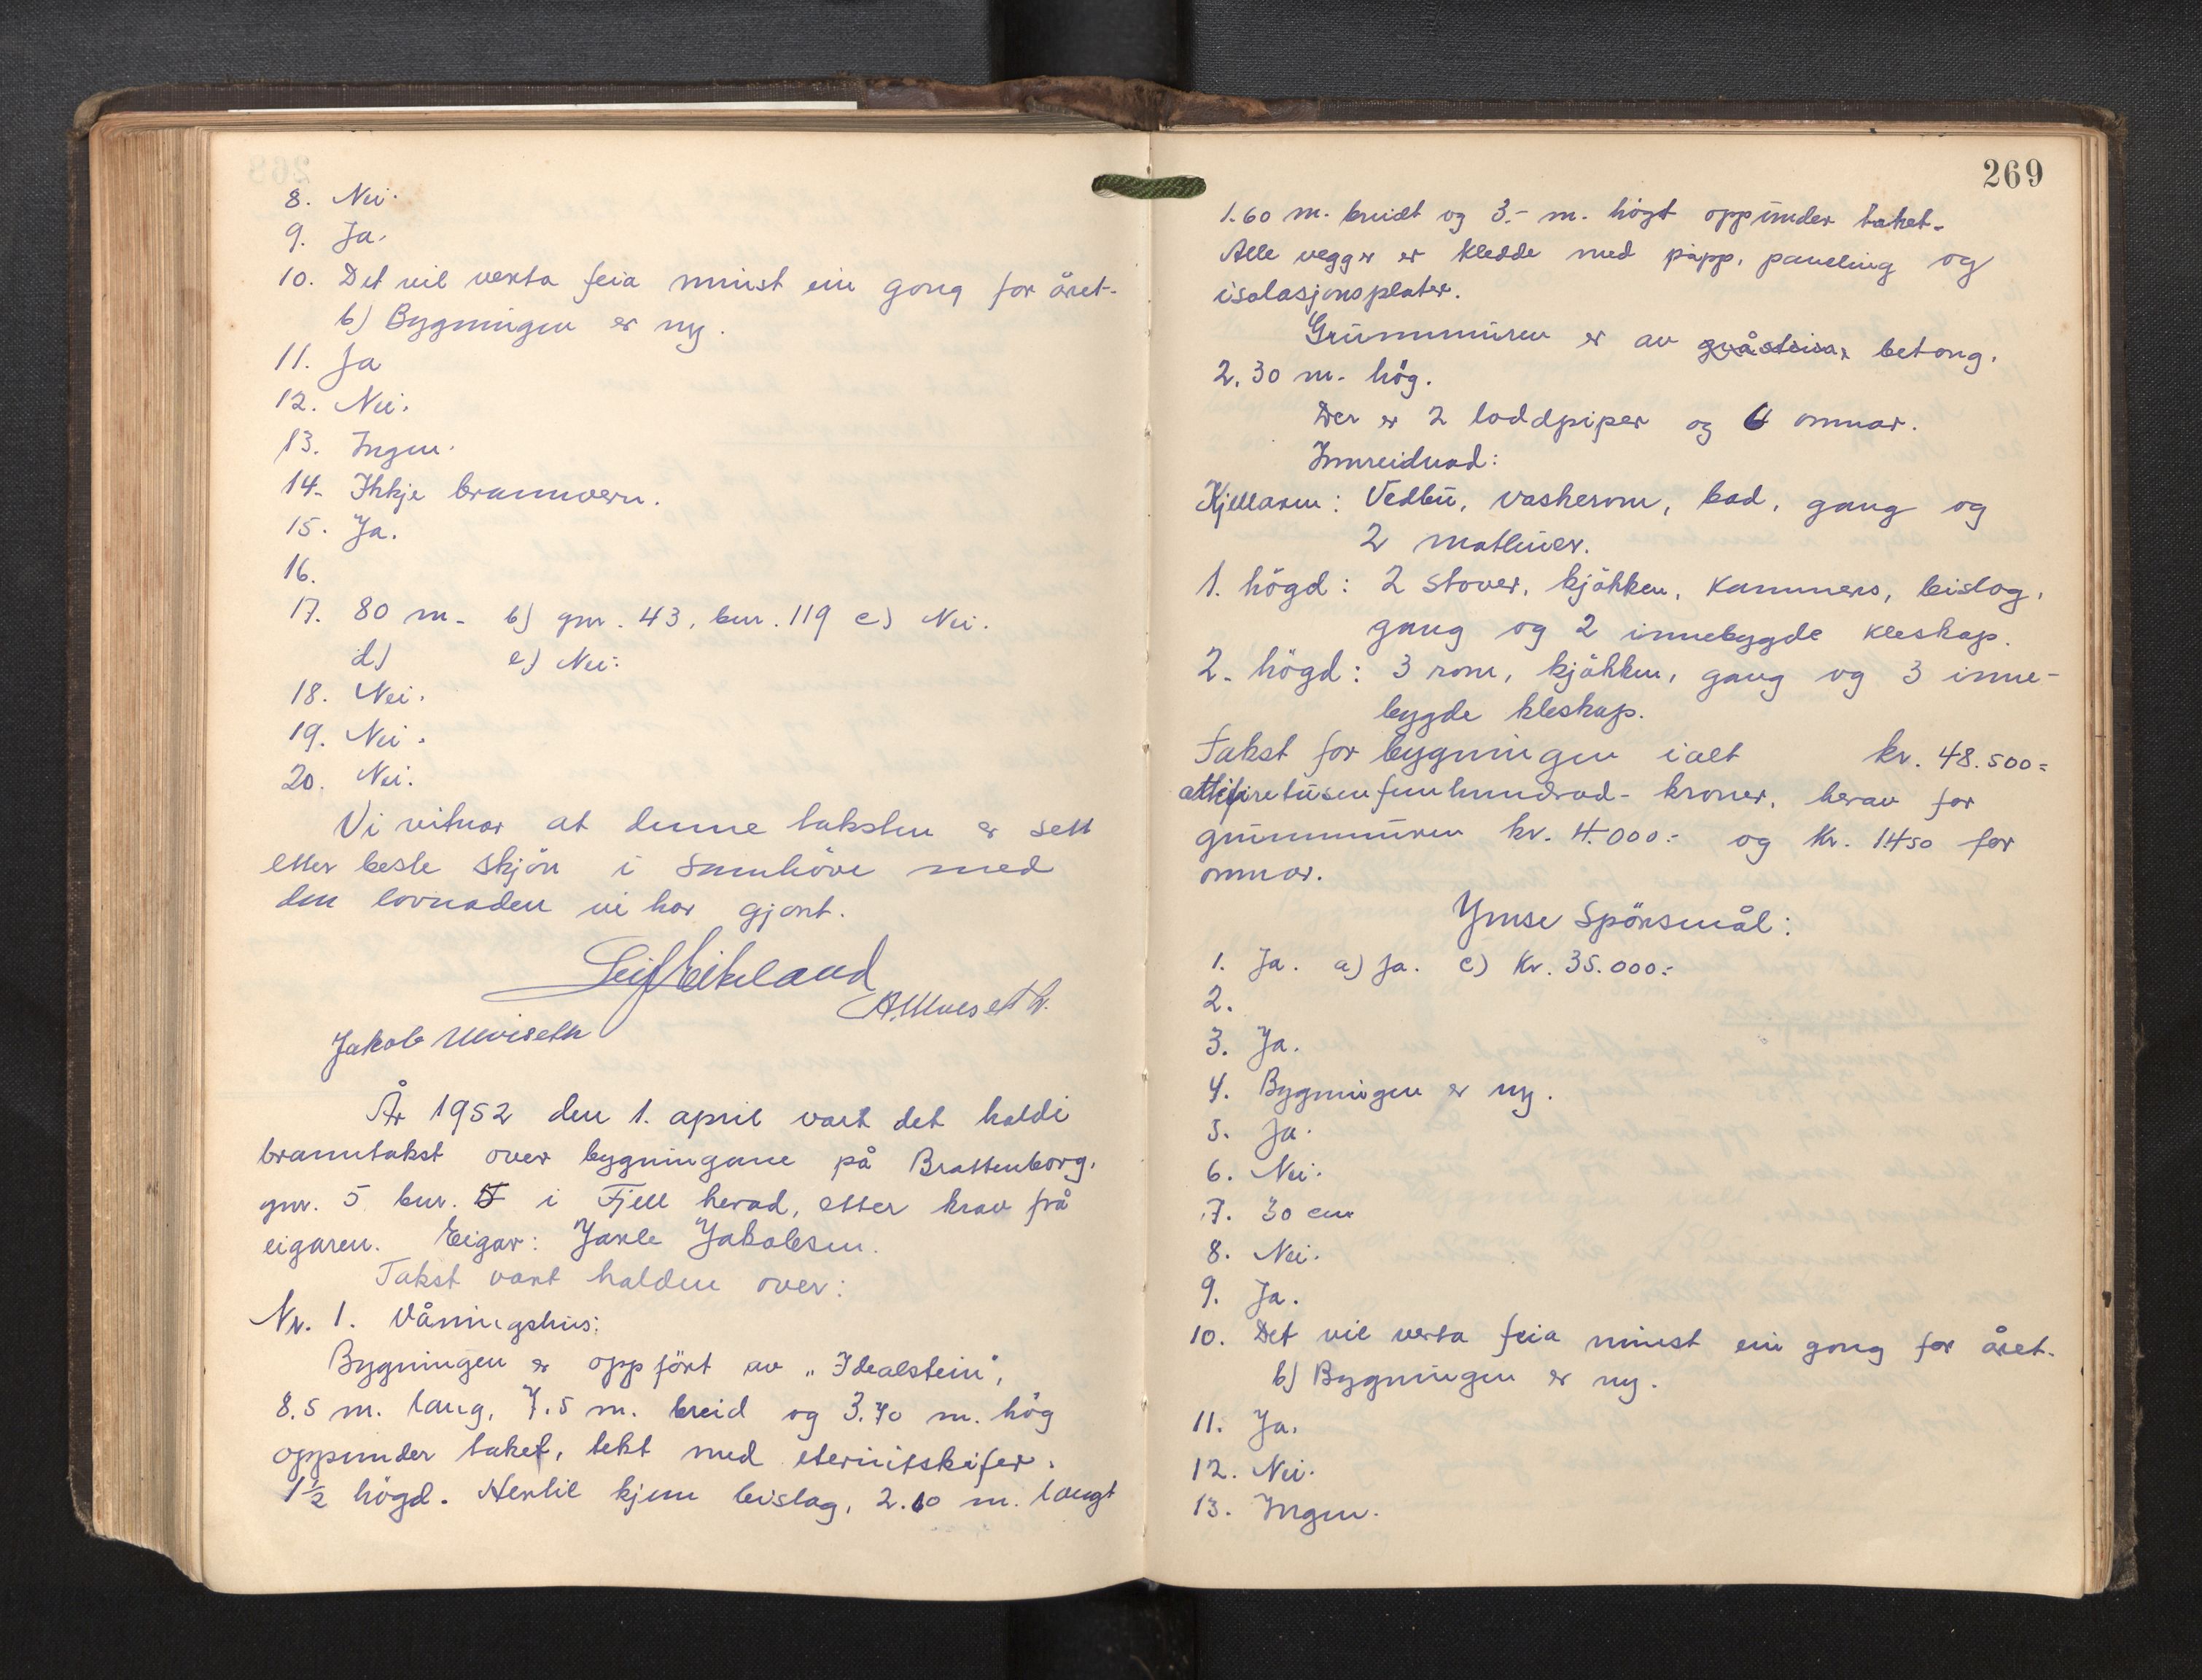 8. Nei.
9. Ja.
10. Det vil verta feia minst ein gong for året.
b) Bygningen er ny.
11. Ja
12. Nei.
13. Ingen.
14. Ikkje brannvern.
15. Ja.
16.
17. 80 m. b) gnr. 43, bnr. 119 c) Nei.
d) e) Nei.
18. Nei.
19. Nei.
20. Nei.
Vi vitnar at denne taksten er sett
etter beste skjön i samhöve med
den lovnaden vi har gjort.
Leif Eikeland
Jakob
År 1952 den 1. april vart det haldi
branntakst over bygningane på Brattenborg,
gnr. 5 bnr. 5 i Fjell herad, etter krav frå
eigaren. Eigar: Jarle Jakobsen.
Takst vart halden over:
Nr. 1. Våningshus:
Bygningen er oppfört av "Idealstein",
8.5 m. lang, 7.5 m. breid og 3.70 m. hög
oppunder taket, tekt med eternitskifer.
1½ högd. Hertil kjem bislag, 2.10 m. langt
269
1.60 m. breidt og 3.- m. högt oppunder taket.
Alle vegger er kledde med papp, paneling og
isolasjonsplater.
Grunnmuren er av gråstein, betong,
2.30 m. hög.
Der er 2 loddpiper og 6 omnar.
Innreidnad:
Kjellaren: Vedbu, vaskerom, bad, gang og
2 matbuer.
1. högd: 2 stover, kjökken, kammers, bislag,
gang og 2 innebygde kleskap.
2. högd: 3 rom, kjökken, gang og 3 inne-
bygde kleskap.
Takst for bygningen ialt kr. 48.500=
femhundrad- kroner, herav for
grunnmuren kr. 4.000:- og kr. 1450 for
omnar.
Ymse Spörsmål:
1. Ja. a) Ja. c) Kr. 35.000:-
2.
3. Ja.
4. Bygningen er ny.
5. Ja.
6. Nei.
7. 30 cm
8. Nei.
9. Ja.
10. Det vil verta feia minst ein gong for året.
b) Bygningen er ny.
11. Ja.
12. Nei.
13. Ingen.